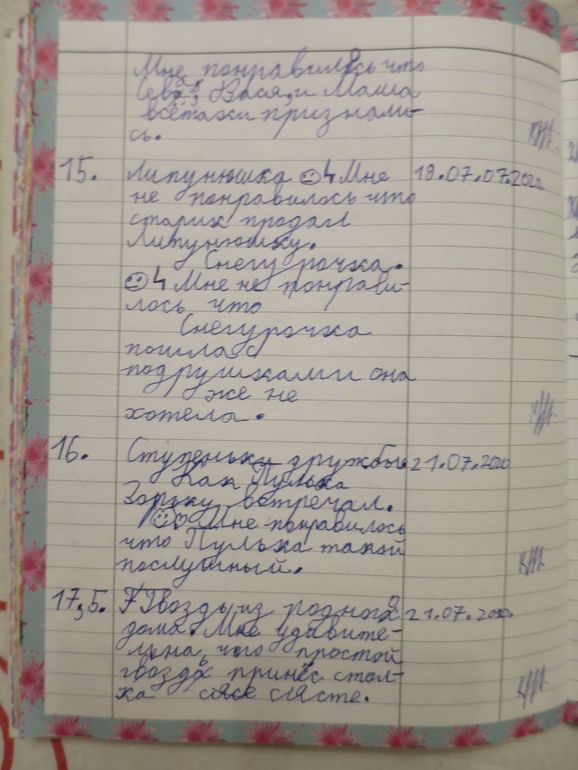 Мне понравилось что
Сева, Вася, и Маша
всётаки признали-
сь.
15. Липунюшка 4 Мне 19.07.07.2020
не понравилось что
старик продал
Липунюшку.
Снегурочка.
4 Мне не понрави-
лось что
Снегурочка
пошла с
подружками она
же не
хотела.
16. Ступеньки дружбы 21.07.2020
Как Пулька
Зорьку встречал.
Мне понравилось
что Пулька такой
послушный.
17,5. Гвоздь из родного 21.07.2020
дома. Мне удивите-
льна, что простой
гвоздь принёс стол-
ка счясте.